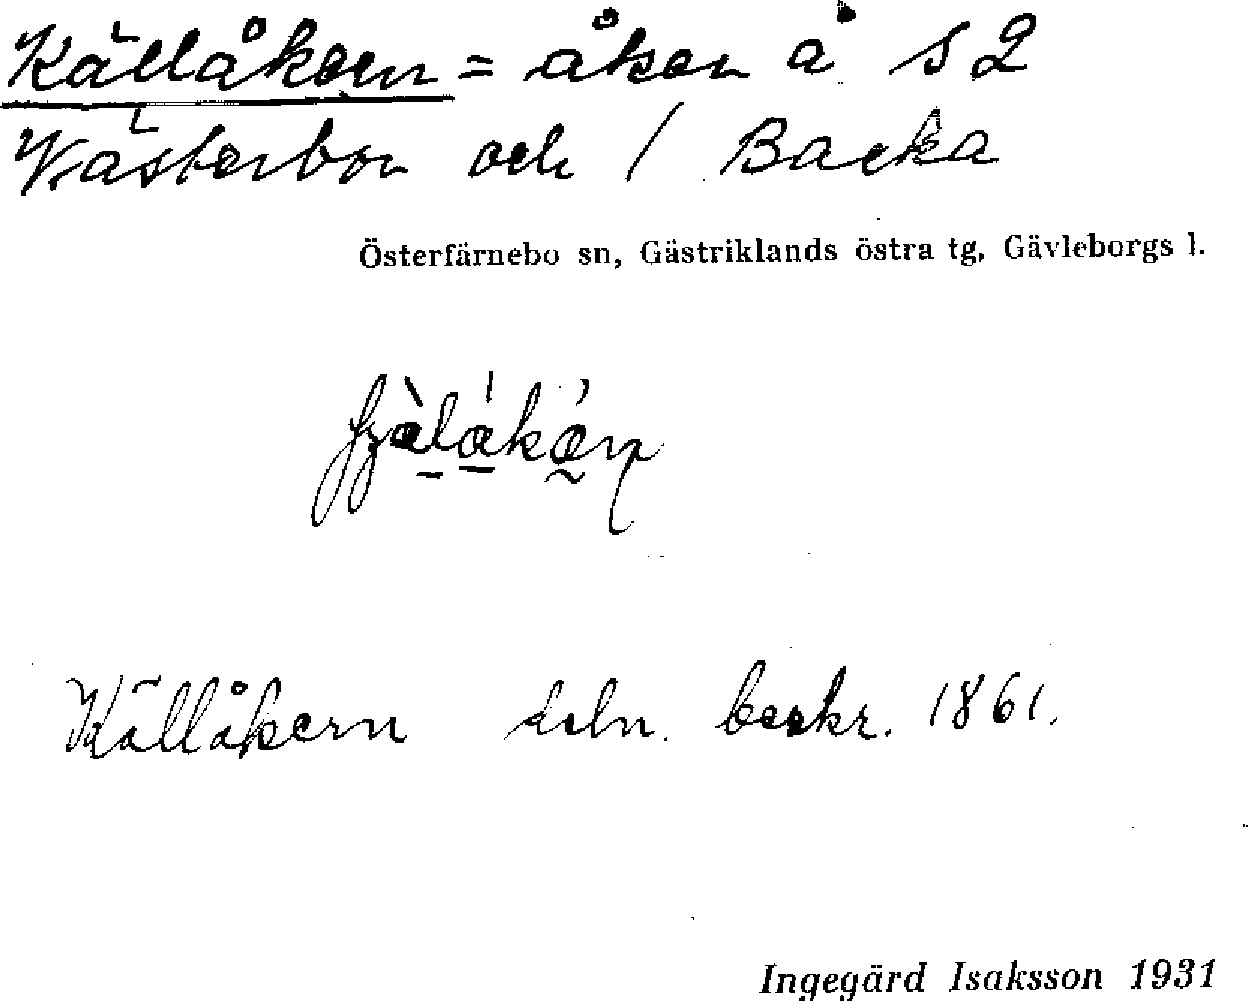 Källåkern = åker å S 2
Västerbor och 1 Backa
Österfärnebo sn, Gästriklands östra tg, Gävleborgs l.
Källåkern beskr. 1861.
Ingegärd Isaksson 1931